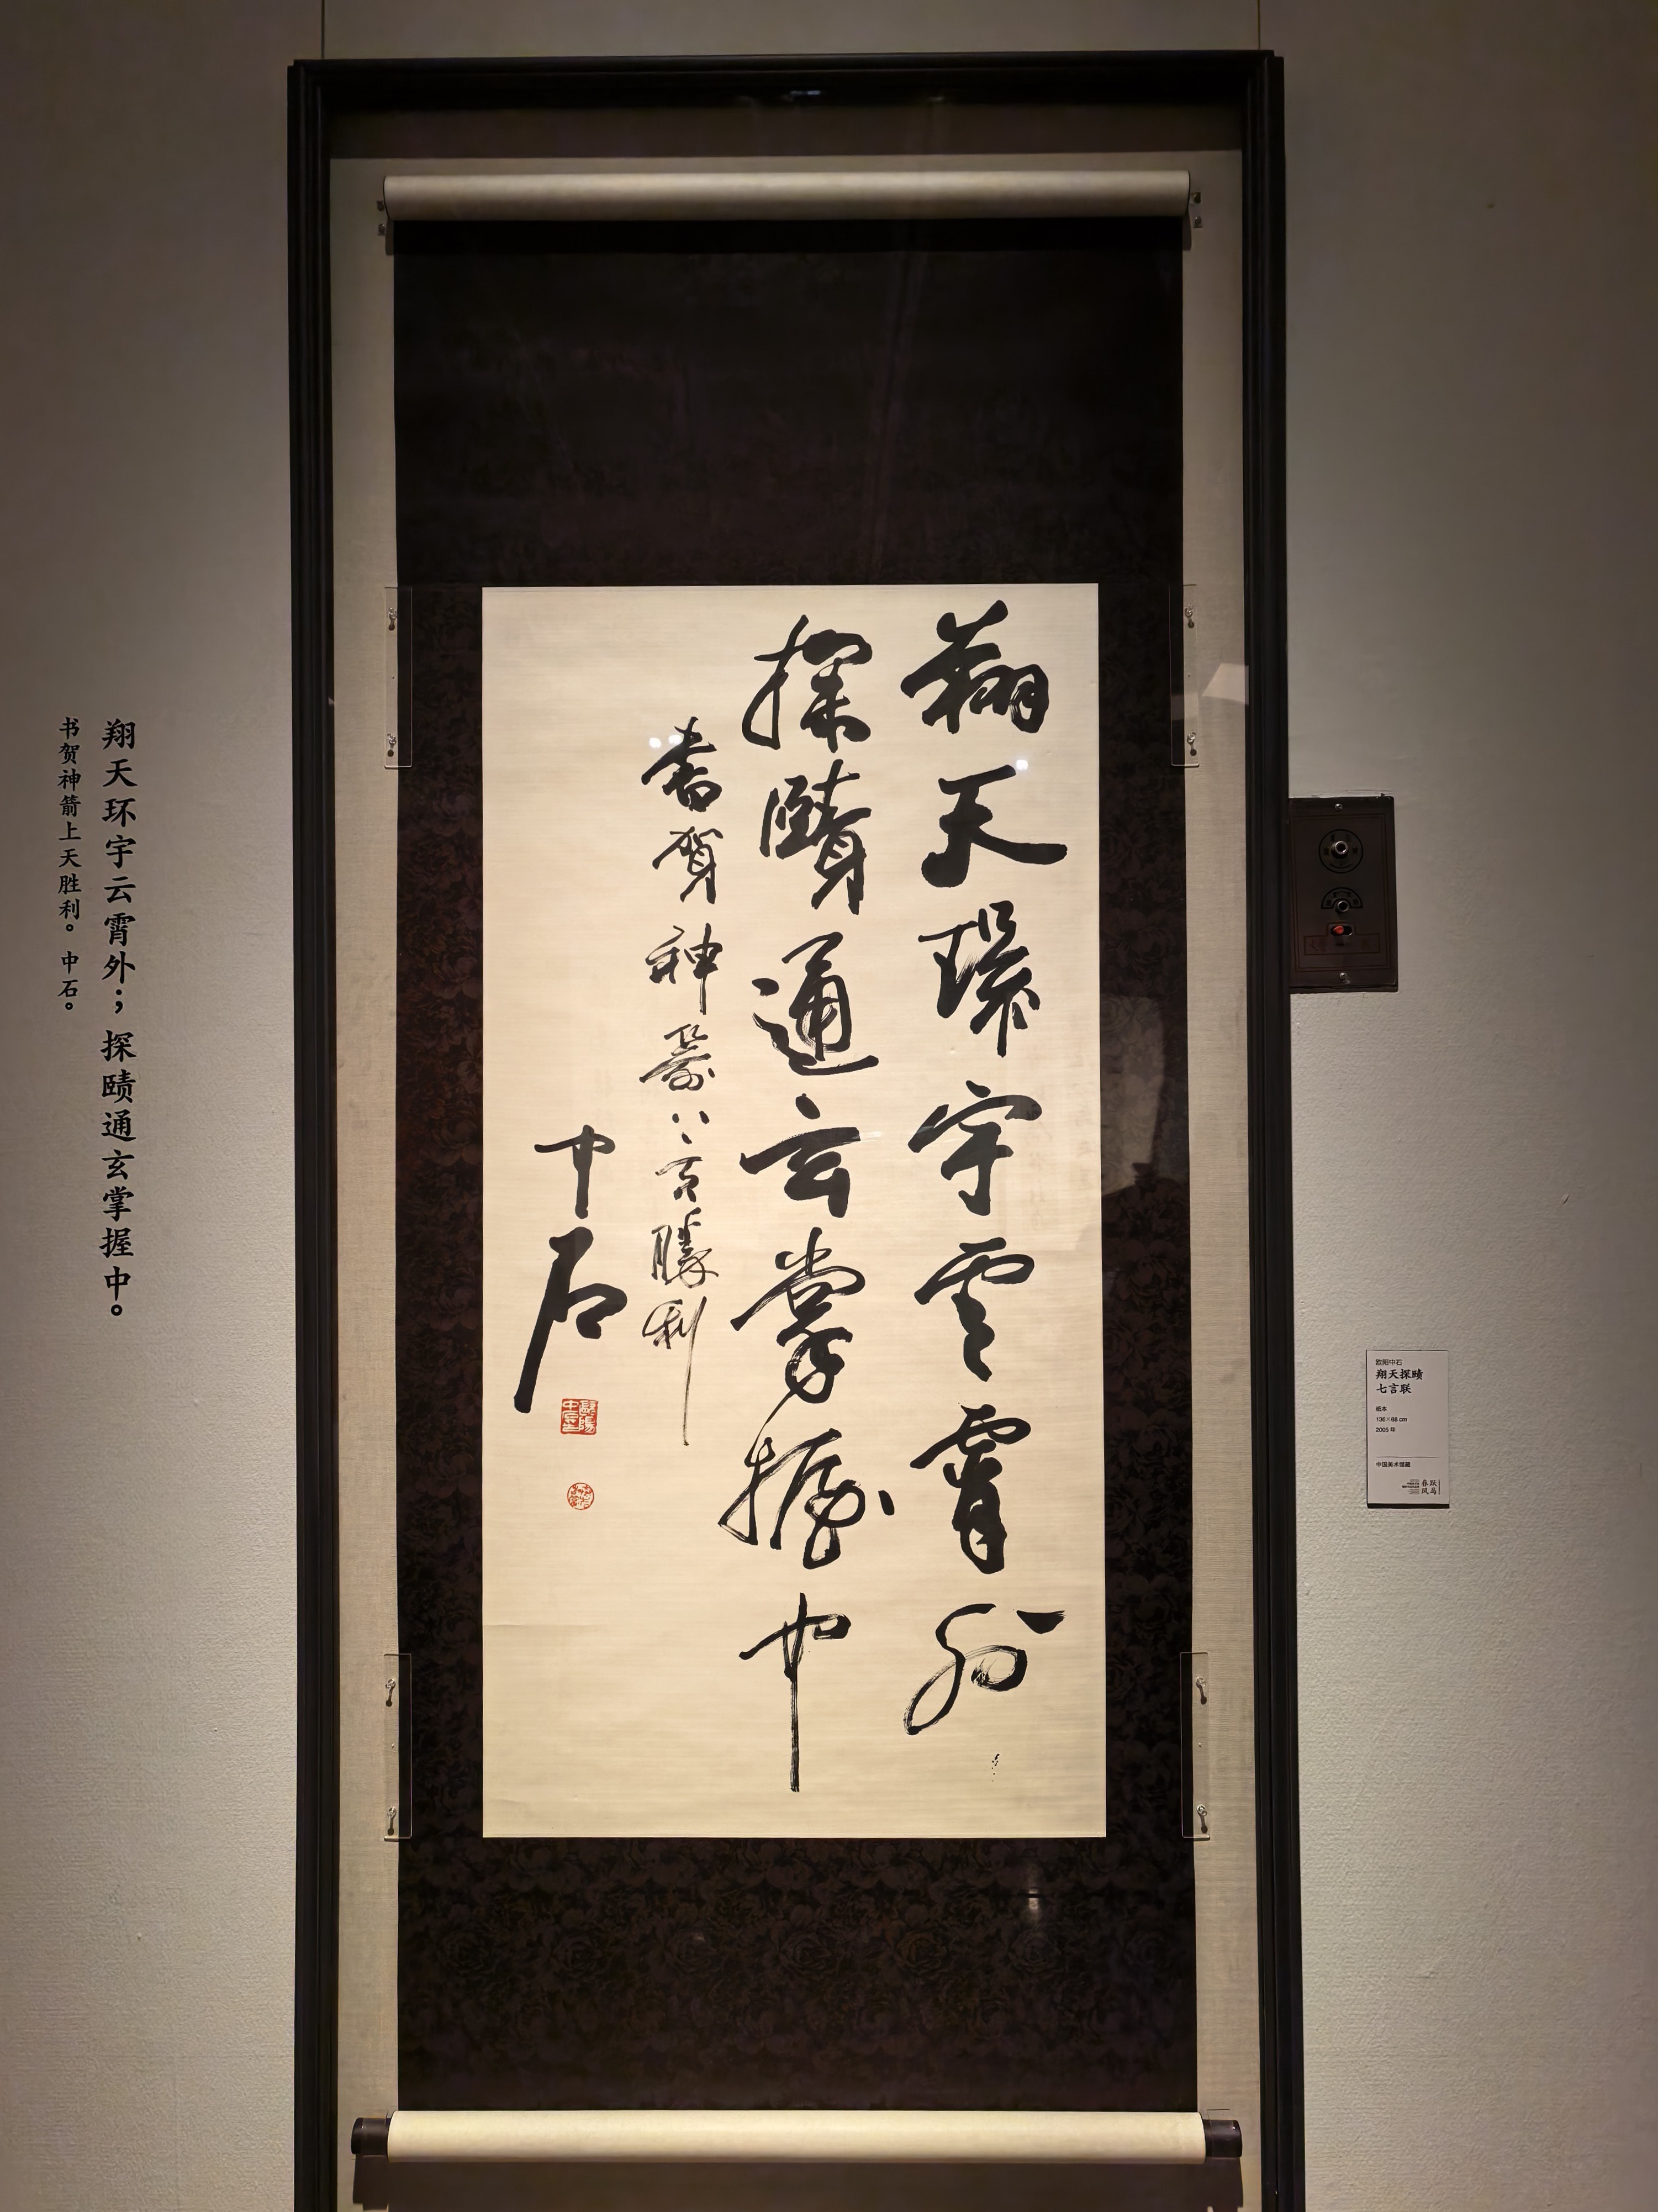 翔天環宇雲霄外
探賾通玄掌握中
書賀神箭上天勝利
中石
翔天环宇云霄外；探赜通玄掌握中。
书贺神箭上天胜利。中石。
欧阳中石
翔天探赜
七言联
纸本
136×68 cm
2005 年
中国美术馆藏
跃马
春风